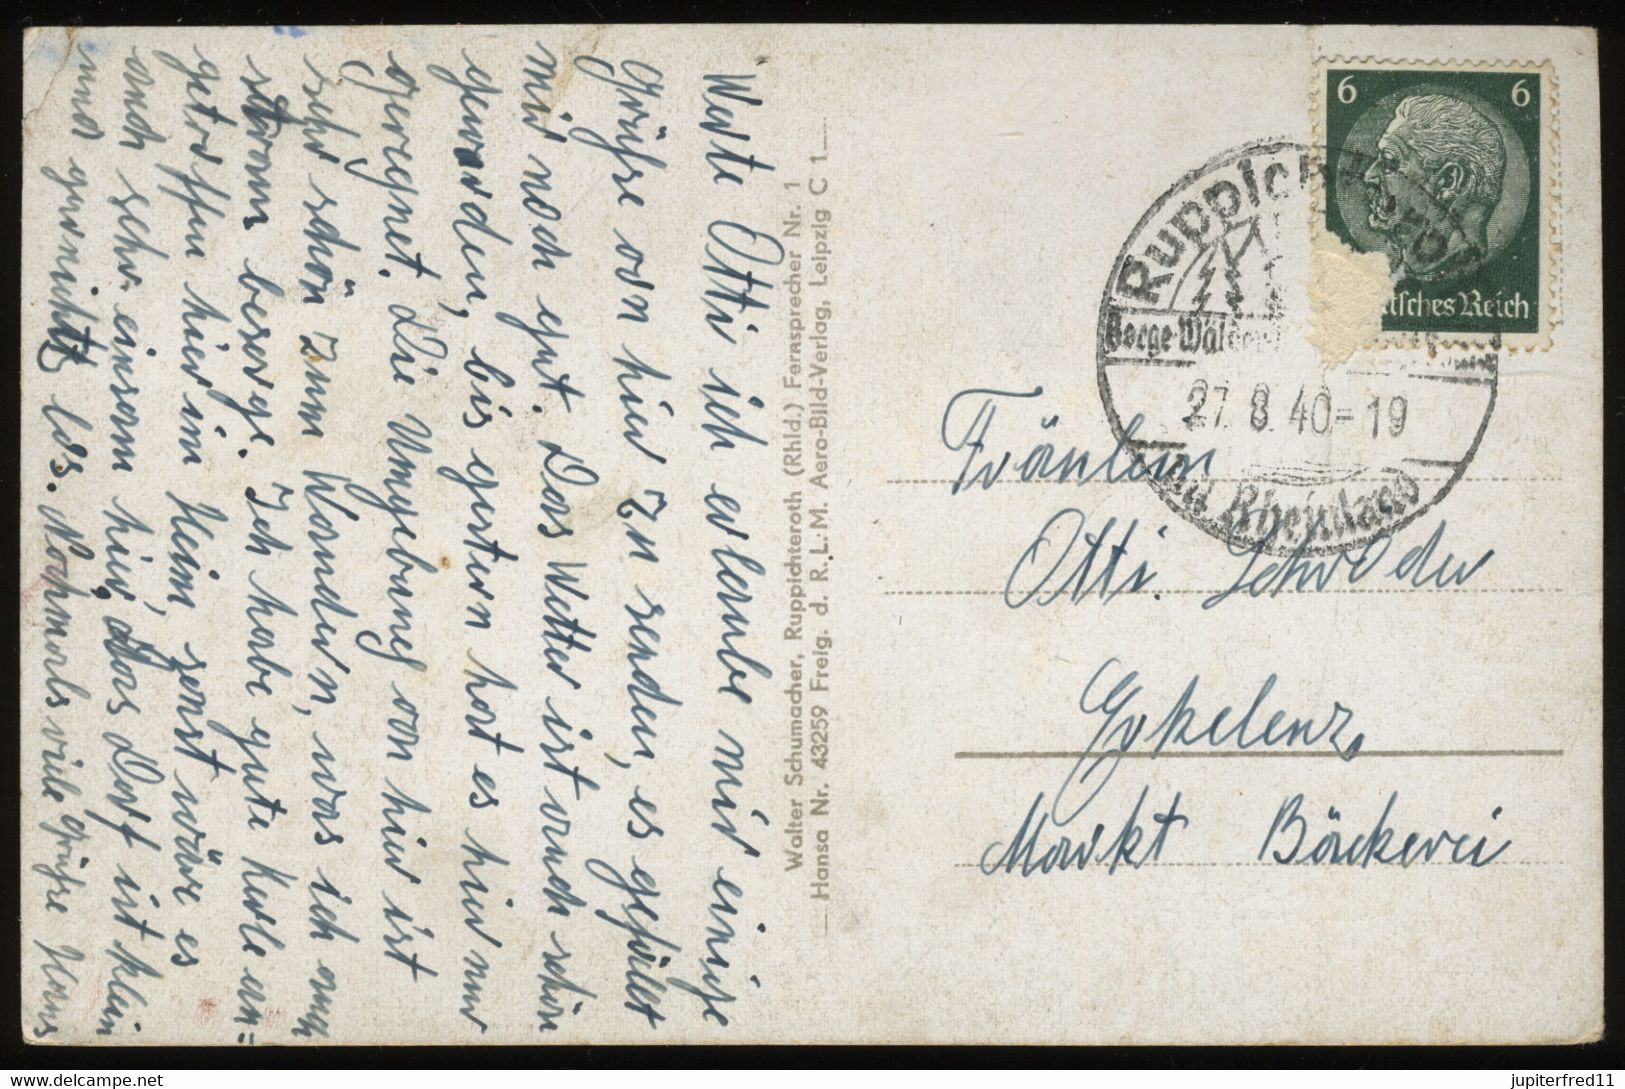 Werte Otti ich erlaube mir einige
Grüße von hier zu senden, es gefällt
mir noch gut. Das Wetter ist auch schön
geworden, bis gestern hat es hier nur
geregnet. Die Umgebung von hier ist
sehr schön zum Wandern, was ich auch
stramm besorge. Ich habe gute Kerle an=
getroffen hier im Heim, sonst wäre es
auch sehr einsam hier, das Dorf ist klein
und garnichts los. Nochmals viele Grüße Hans
Walter Schumacher, Ruppichteroth (Rhld.) Fernsprecher Nr. 1
Hansa Nr. 43259 Freig. d. R. L. M. Aero-Bild-Verlag, Leipzig C 1
6 6
Deutsches Reich
Ruppichteroth
Berge Wälder
27. 8. 40 - 19
Rheinland
Fräulein
Otti. Schröder
Erkelenz
Markt Bäckerei
jupiterfred11